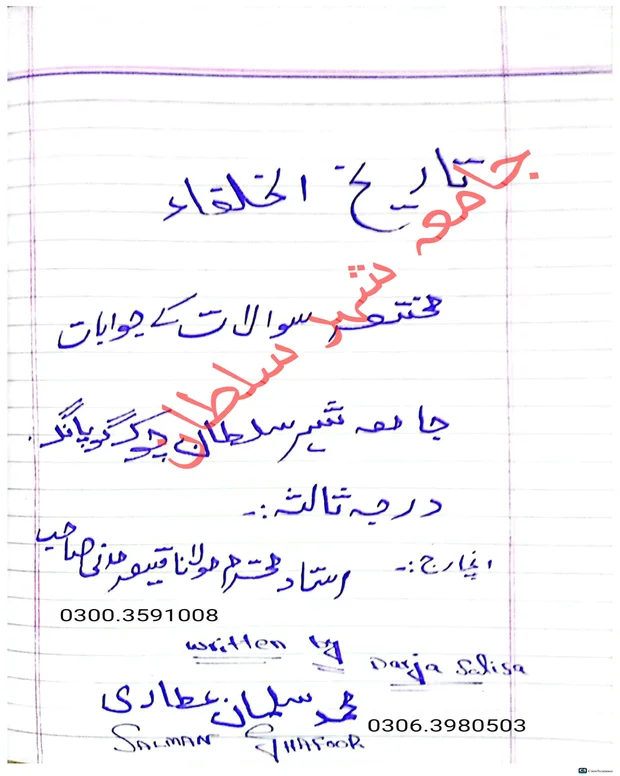 تاریخ الخلفاء
مختصر سوالات کے جوابات
جامعہ شہر سلطان چوک گوپانگ
درجہ ثالثہ :-
انچارج :- استاد محترم مولانا قیصر مدنی صاحب
0300.3591008
written by Darja Salisa
محمد سلمان عطاری
0306.3980503
SALMAN GHAFOOR
جامعہ شہر سلطان
CamScanner